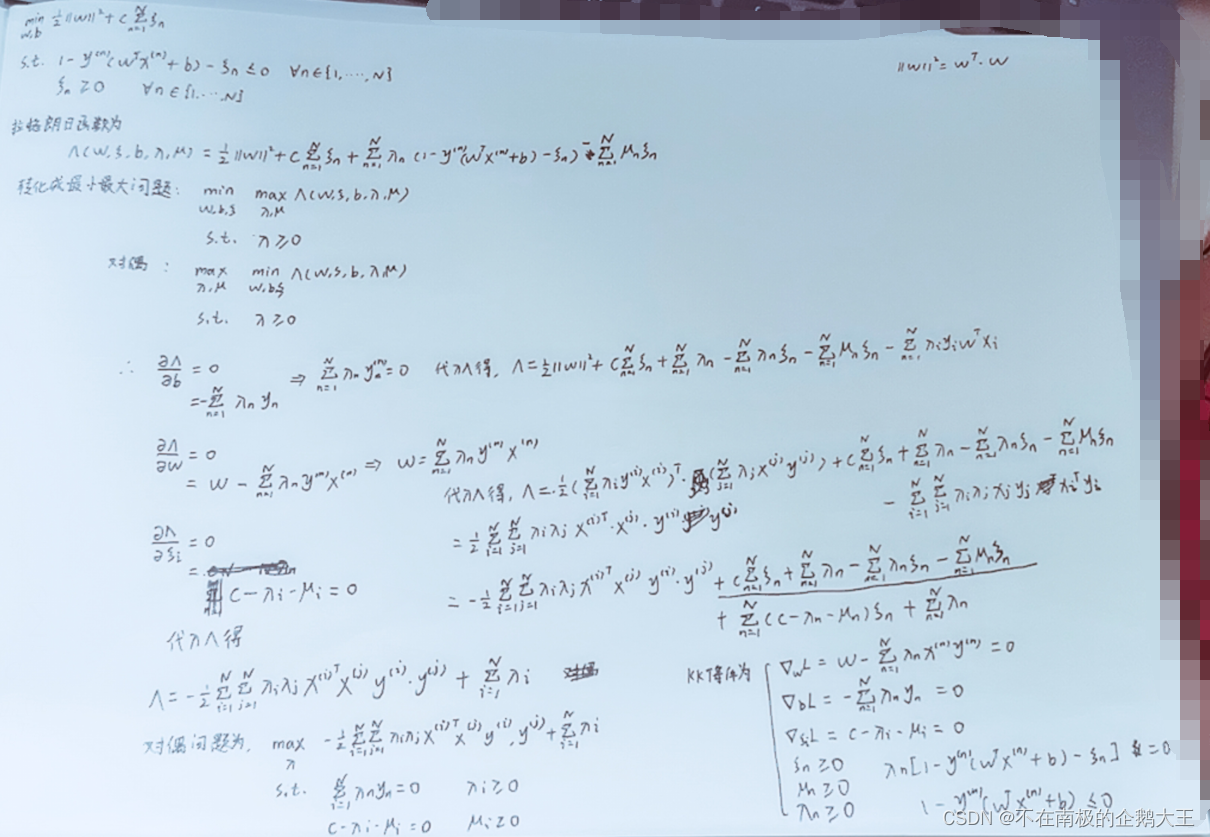 min 1/2||w||² + C Σ_{n=1}^{N} ξn
w,b
||w||² = wᵀ·w
s.t. 1 - y⁽ⁿ⁾(wᵀx⁽ⁿ⁾+b) - ξn ≤ 0 ∀n∈{1,…,N}
ξn ≥ 0 ∀n∈{1,…,N}
拉格朗日函数为
Λ(w,ξ,b,λ,μ) = 1/2||w||² + C Σ_{n=1}^{N} ξn + Σ_{n=1}^{N} λn (1 - y⁽ⁿ⁾(wᵀx⁽ⁿ⁾+b) - ξn) - Σ_{n=1}^{N} μnξn
转化成最小最大问题: min max Λ(w,ξ,b,λ,μ)
w,b,ξ λ,μ
s.t. λ ≥ 0
对偶: max min Λ(w,ξ,b,λ,μ)
λ,μ w,b,ξ
s.t. λ ≥ 0
∴ ∂Λ/∂b = 0 ⇒ Σ_{n=1}^{N} λn y⁽ⁿ⁾ = 0 代入Λ得, Λ = 1/2||w||² + C Σ_{n=1}^{N} ξn + Σ_{n=1}^{N} λn - Σ_{n=1}^{N} λnξn - Σ_{n=1}^{N} μnξn - Σ_{n=1}^{N} λiyiwᵀxi
= -Σ_{n=1}^{N} λnyn
∂Λ/∂w = 0
= w - Σ_{n=1}^{N} λn y⁽ⁿ⁾x⁽ⁿ⁾ ⇒ w = Σ_{n=1}^{N} λn y⁽ⁿ⁾x⁽ⁿ⁾
代入Λ得, Λ = 1/2(Σ_{i=1}^{N} λiy⁽ⁱ⁾x⁽ⁱ⁾)ᵀ·(Σ_{j=1}^{N} λjx⁽ʲ⁾y⁽ʲ⁾) + C Σ_{n=1}^{N} ξn + Σ_{n=1}^{N} λn - Σ_{n=1}^{N} λnξn - Σ_{n=1}^{N} μnξn
- Σ_{i=1}^{N} Σ_{j=1}^{N} λiλjxjyj xiᵀyi
∂Λ/∂ξi = 0
= 1/2 Σ_{i=1}^{N} Σ_{j=1}^{N} λiλj x⁽ⁱ⁾ᵀ·x⁽ʲ⁾·y⁽ⁱ⁾y⁽ʲ⁾
C - λi - μi = 0
= -1/2 Σ_{i=1}^{N} Σ_{j=1}^{N} λiλj x⁽ⁱ⁾ᵀx⁽ʲ⁾y⁽ⁱ⁾·y⁽ʲ⁾ + C Σ_{n=1}^{N} ξn + Σ_{n=1}^{N} λn - Σ_{n=1}^{N} λnξn - Σ_{n=1}^{N} μnξn
+ Σ_{n=1}^{N} (C-λn-μn)ξn + Σ_{n=1}^{N} λn
代入Λ得
Λ = -1/2 Σ_{i=1}^{N} Σ_{j=1}^{N} λiλj x⁽ⁱ⁾ᵀx⁽ʲ⁾y⁽ⁱ⁾·y⁽ʲ⁾ + Σ_{i=1}^{N} λi
对偶问题为, max -1/2 Σ_{i=1}^{N} Σ_{j=1}^{N} λiλj x⁽ⁱ⁾ᵀx⁽ʲ⁾y⁽ⁱ⁾·y⁽ʲ⁾ + Σ_{i=1}^{N} λi
λ
s.t. Σ_{i=1}^{N} λnyn = 0 λi ≥ 0
C - λi - μi = 0 μi ≥ 0
KK條件为
∇wL = w - Σ_{n=1}^{N} λnx⁽ⁿ⁾y⁽ⁿ⁾ = 0
∇bL = -Σ_{n=1}^{N} λnyn = 0
∇ξiL = C - λi - μi = 0
ξn ≥ 0 λn[1 - y⁽ⁿ⁾(wᵀx⁽ⁿ⁾+b) - ξn] = 0
μn ≥ 0
λn ≥ 0 1 - y⁽ⁿ⁾(wᵀx⁽ⁿ⁾+b) ≤ 0
CSDN @不在南极的企鹅大王